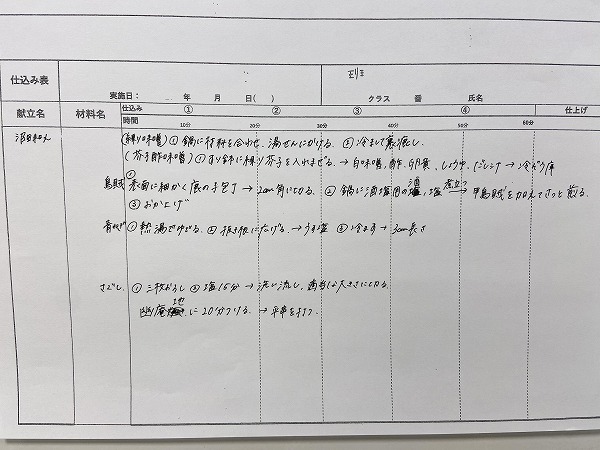 仕込み表
実施日： 年 月 日( ) クラス 番 氏名
献立名 材料名 仕込み ① ② ③ ④ 仕上げ
時間 10分 20分 30分 40分 50分 60分
(練り味噌) ① 鍋に材料を合わせ、湯せんにかける。 ② 冷まして裏漉し。
(芥子酢味噌) ① すり鉢に練り芥子を入れまぜる。→ 白味噌、酢、卵黄、しょうゆ、だし → 冷ぞう庫
烏賊 ① 表面に細かく鹿の子包丁 → 2cm角に切る。 ② 鍋に酒 塩 沸立つ → 甲烏賊を加えてさっと煎る。
③ おか上げ
青ねぎ ① 熱湯でゆでる。 ② 抜き板に広げる。→ うす塩 ③ 冷ます → 3cm長さ
さごし ① 三枚おろし ② 塩15分 → 洗い流し、適当な大きさに切る。
幽庵地に20分つける。→ 平串を打つ